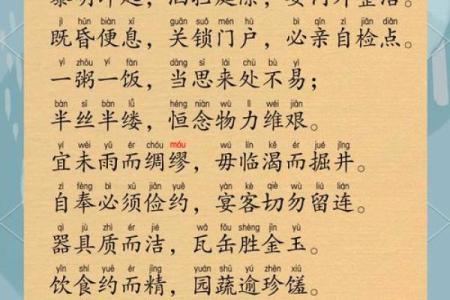 jì hūn biàn xī guān suǒ mén hù bì qīn zì jiǎn diǎn
既昏便息，关锁门户，必亲自检点。
yì zhōu yí fàn dāng sī lái chù bú yì
一粥一饭，当思来处不易；
bàn sī bàn lǚ héng niàn wù lì wéi jiān
半丝半缕，恒念物力维艰。
yí wèi yǔ ér chóu móu wú lín kě ér jué jǐng
宜未雨而绸缪，毋临渴而掘井。
zì fèng bì xū jiǎn yuē yàn kè qiè wù liú lián
自奉必须俭约，宴客切勿留连。
qì jù zhì ér jié wǎ fǒu shèng jīn yù
器具质而洁，瓦缶胜金玉。
yǐn shí yuē ér jīng yuán shū yù zhēn xiū
饮食约而精，园蔬逾珍馐。